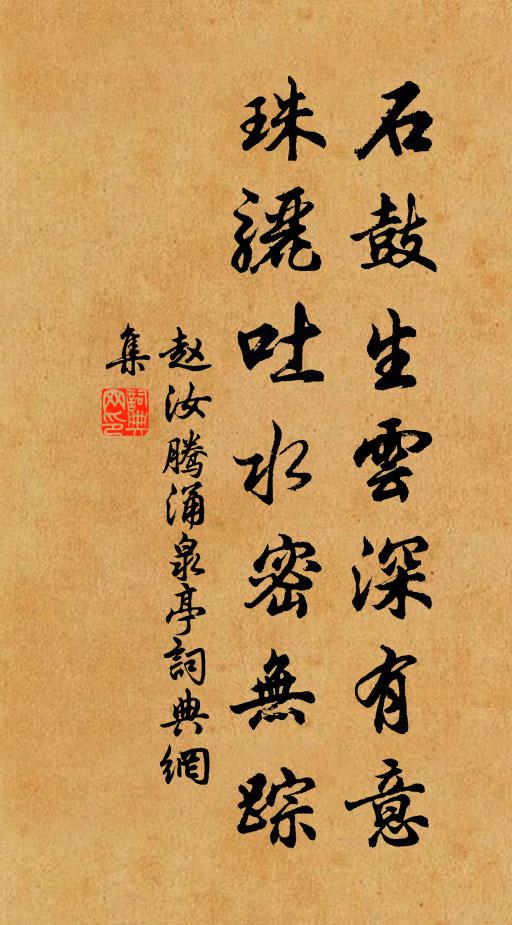 石鼓生雲深有意
珠驪吐水密無踪
赵汝腾涌泉亭詞典網
集
詞典網印